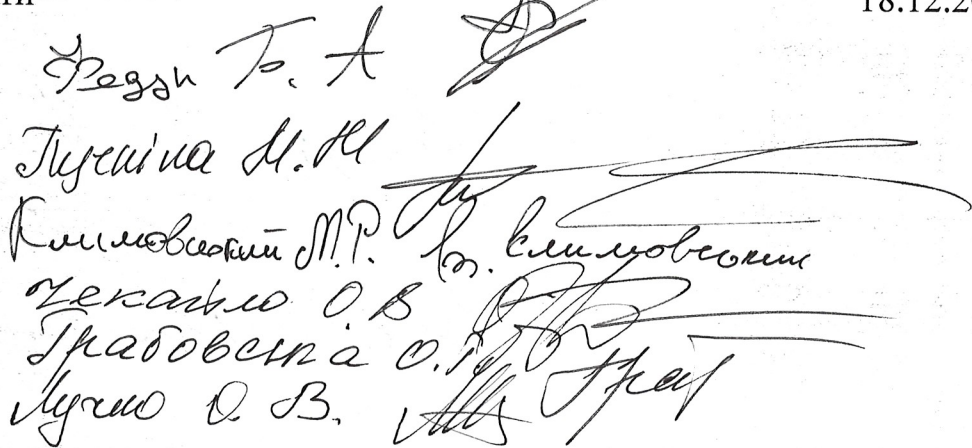 18.12.2
Федун Б. А
Пучкіна М. М
Климовський М.Р. Климовський
Чекайло О.В
Грабовська О.
Лучко О. В.